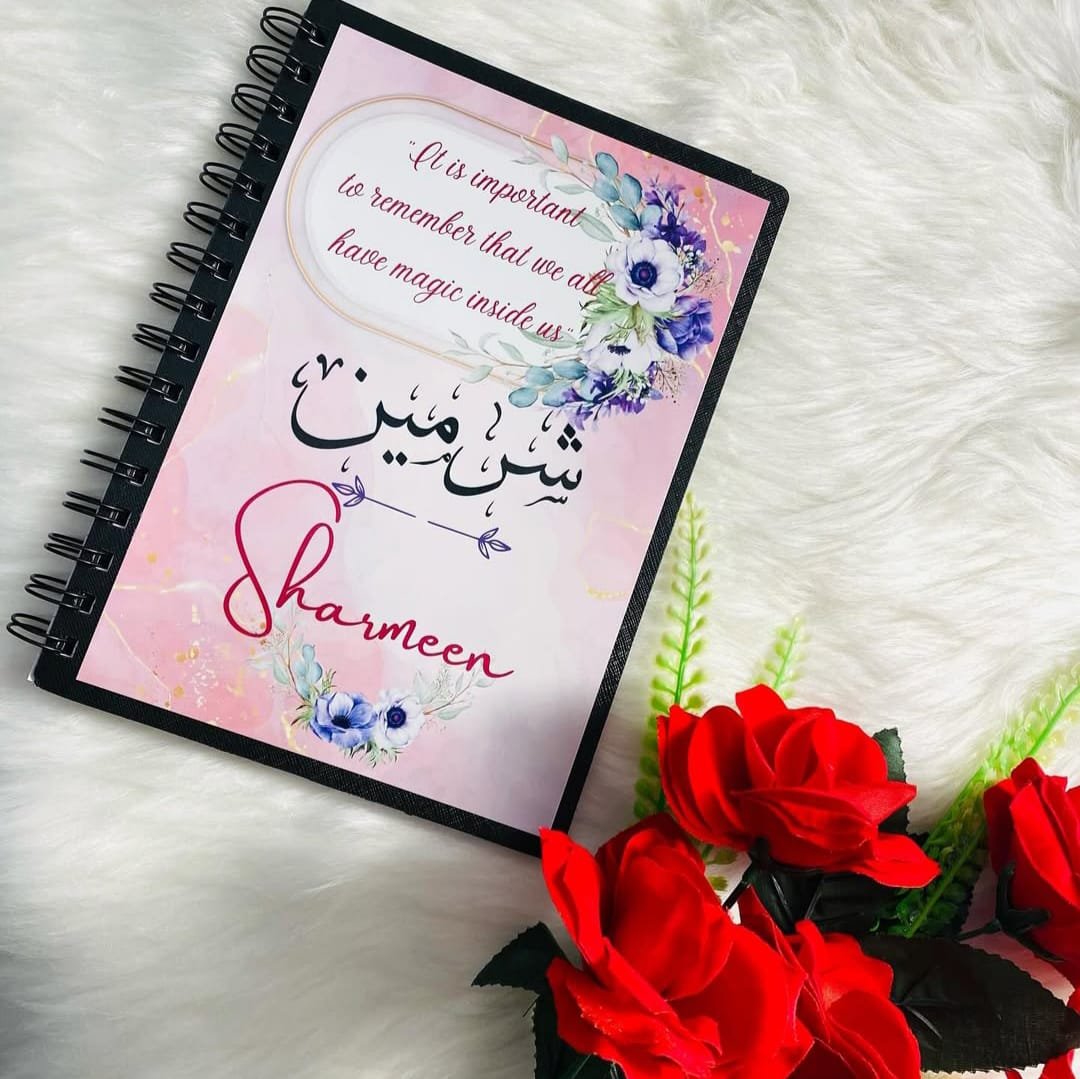 "It is important
to remember that we all
have magic inside us"
شرمین
Sharmeen